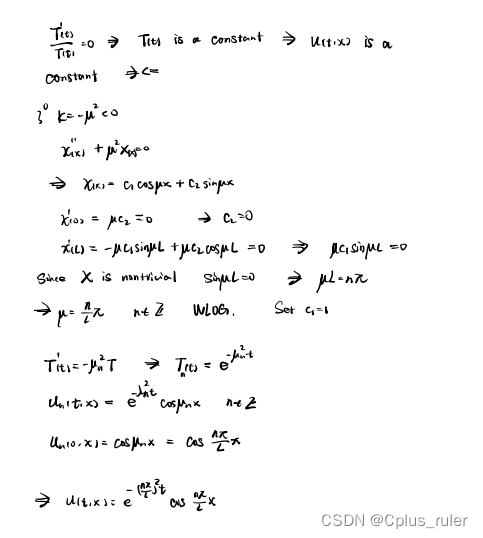 T'(t)/T(t) = 0 ⇒ T(t) is a constant ⇒ u(t,x) is a
constant → c=
3° K = -μ² < 0
X''(x) + μ²X(x) = 0
⇒ X(x) = c₁cosμx + c₂sinμx
X'(0) = μc₂ = 0 → c₂ = 0
X'(L) = -μc₁sinμL + μc₂cosμL = 0 ⇒ μc₁sinμL = 0
Since X is nontrivial sinμL = 0 ⇒ μL = nπ
→ μ = n/L π n∈Z WLOG. Set c₁=1
T'(t) = -μₙ²T ⇒ Tₙ(t) = e^(-μₙ²t)
uₙ(t,x) = e^(-λₙ²t) cosμₙx n∈Z
uₙ(0,x) = cosμₙx = cos nπ/L x
⇒ u(t,x) = e^(-(nπ/L)²t) cos nπ/L x
CSDN @Cplus_ruler